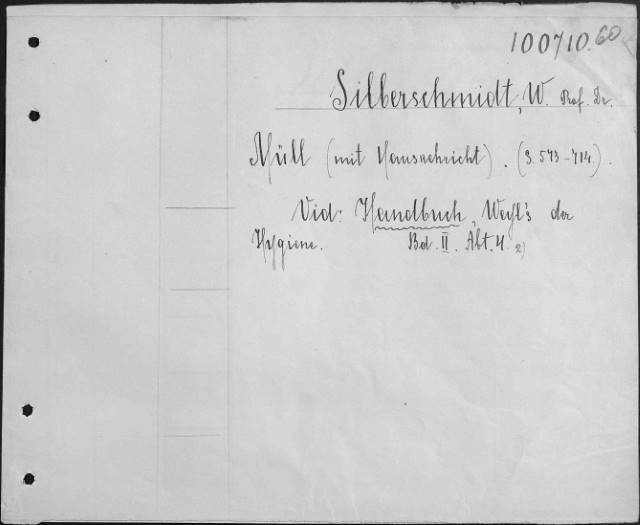 100710.60
Silberschmidt, W. Prof. Dr.
Müll (mit Hauskehricht). (S. 573-714).
Vid: Handbuch, Weyl's der
Hygiene. Bd. II. Abt. 4. 2)